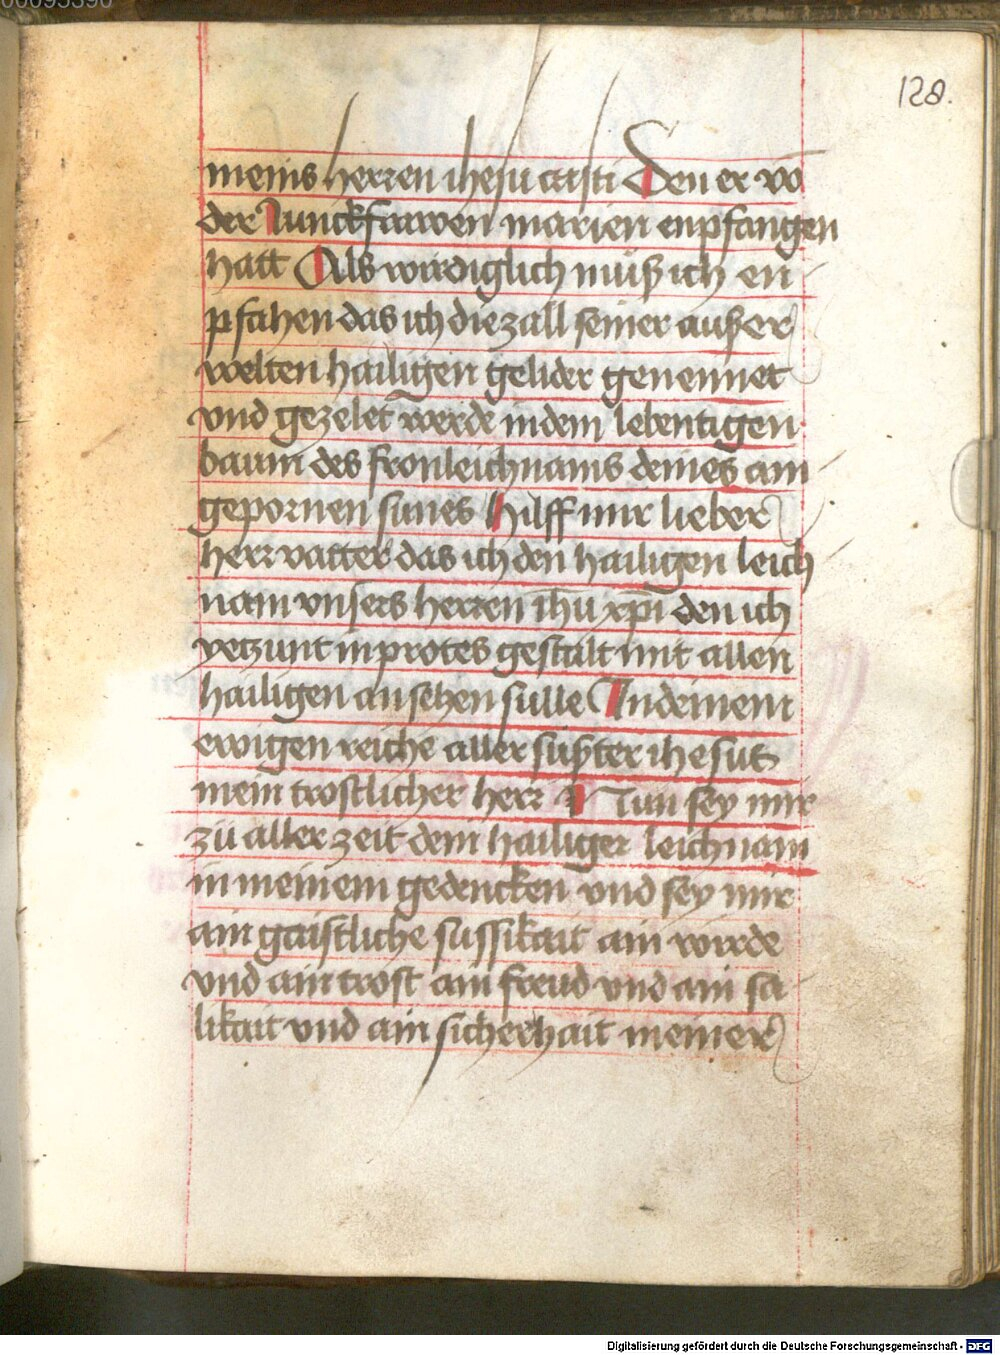 00095390
128.
meins herren ihesu cristi Den er vō
der Junckfrawen marien enpfangen
hatt Als wirdiglich müß ich en
pfahen das ich die zall seiner außer
welten hailigen gelider genennet
vnd gezelet werde in dem lebentigen
baum des fronleichnams deines ain
gepornen sunes Hilff mir lieber
herr vatter das ich den hailigen leich
nam vnsers herren ihū xp̄i den ich
yetzunt in protes gestalt mit allen
hailigen an sehen sülle In deinem
ewigen reiche aller süßter ihesus
mein trostlicher herr Nun sey mir
zü aller zeit dein hailiger leichnam
in meinem gedencken vnd sey mir
ain gaistliche sussikait ain wirde
vnd ain trost ain freud vnd ain sa
likait vnd ain sicherhait meiner
Digitalisierung gefördert durch die Deutsche Forschungsgemeinschaft - DFG